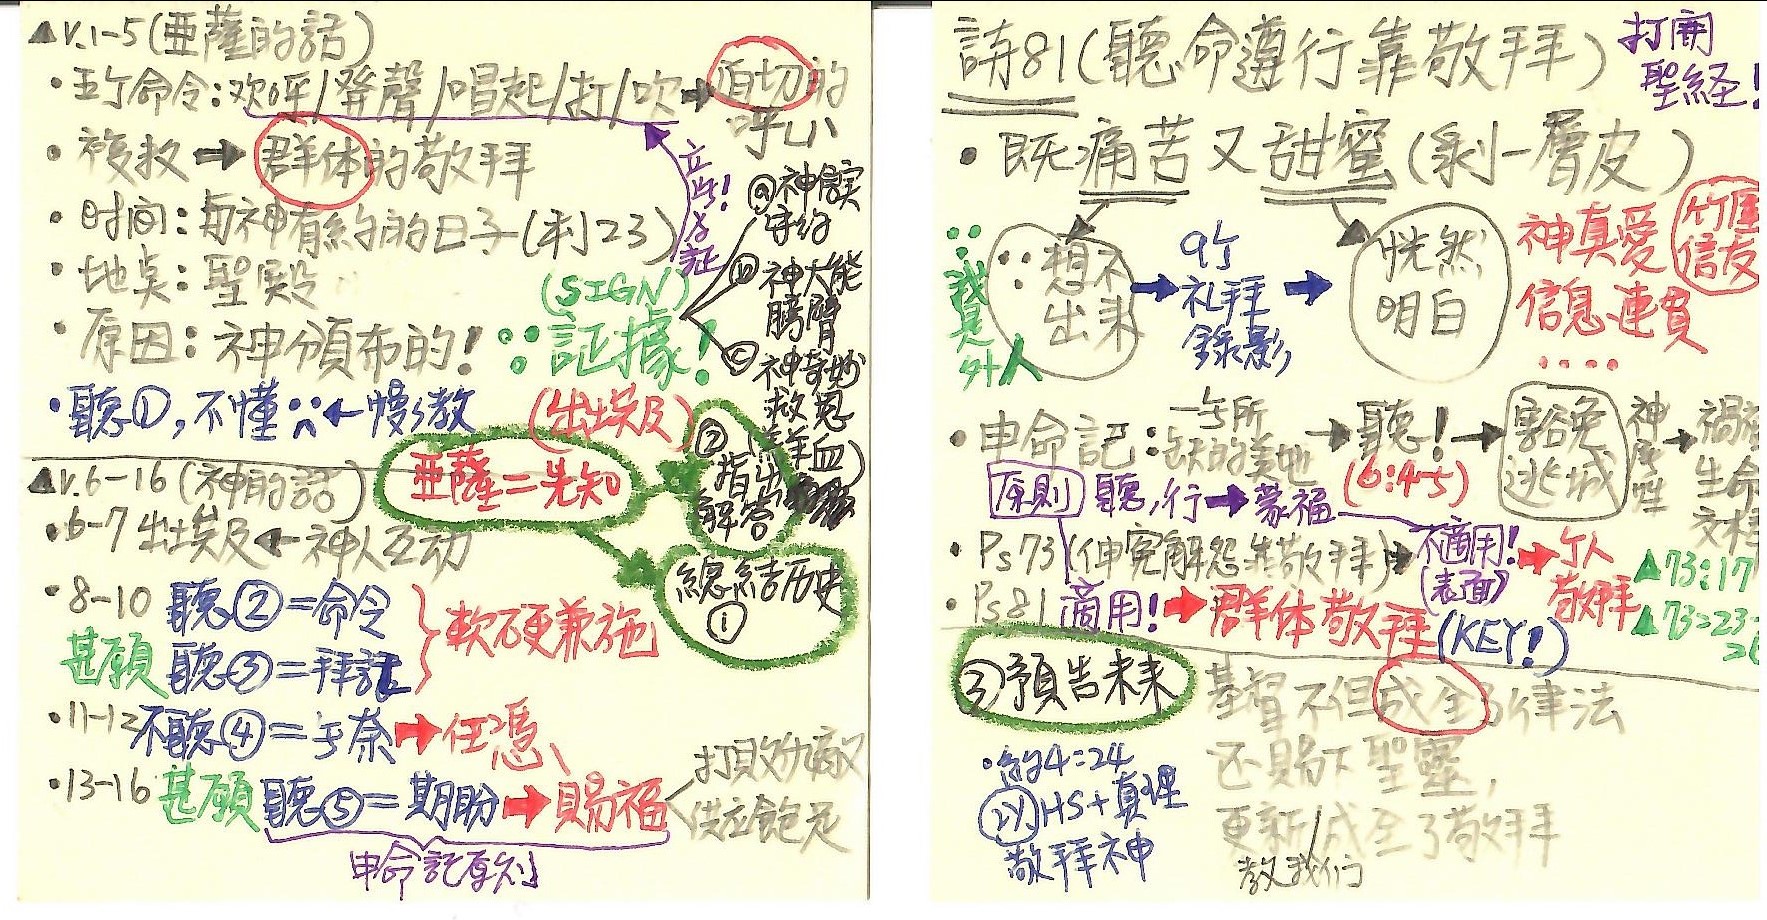 ▲v.1-5(亜薩的話)
•五个命令:欢呼/發聲/唱起/打/唱→迫切的
呼
•複数→群体的敬拜
•时间:与神有約的日子(利23)
•地点:聖殿
•原因:神頒布的!
(SIGN)
∵証據!
立此为証
ⓐ神信実
守約
ⓑ神大能
膀臂
ⓒ神奇妙
救恩
(羊血)
•聽①,不懂
(出埃及)
亜薩=先知
②
指出
解答
總結历史
①
▲v.6-16(神的話)
•6-7出埃及←神人互动
•8-10聽②=命令
甚願聽③=拜誰
}軟硬兼施
•11-12不聽④=无奈→任憑
•13-16甚願聽⑤=期盼→賜福
打敗仇敵
供应飽足
申命記原則
詩81(聽命遵行靠敬拜)
打開
聖経!
•既痛苦又甜蜜(剥一層皮)
∵
外人
∵想不
出来
→9个
礼拜
錄影
→恍然
明白
神真愛
信息連貫
....
信友
•申命記:一无所
缺的美地
→聽!→豁免
逃城
(6:4-5)
原則 聽,行→蒙福
•Ps73(伸冤解怨靠敬拜)→不適用!
(表面)
→个人
敬拜
▲73:17
▲73:23-
•Ps81適用!→群体敬拜(KEY!)
③預告未来
基督不但成全了律法
还賜下聖靈,
更新/成全了敬拜
教我们
•約4:24
以HS+真理
敬拜神